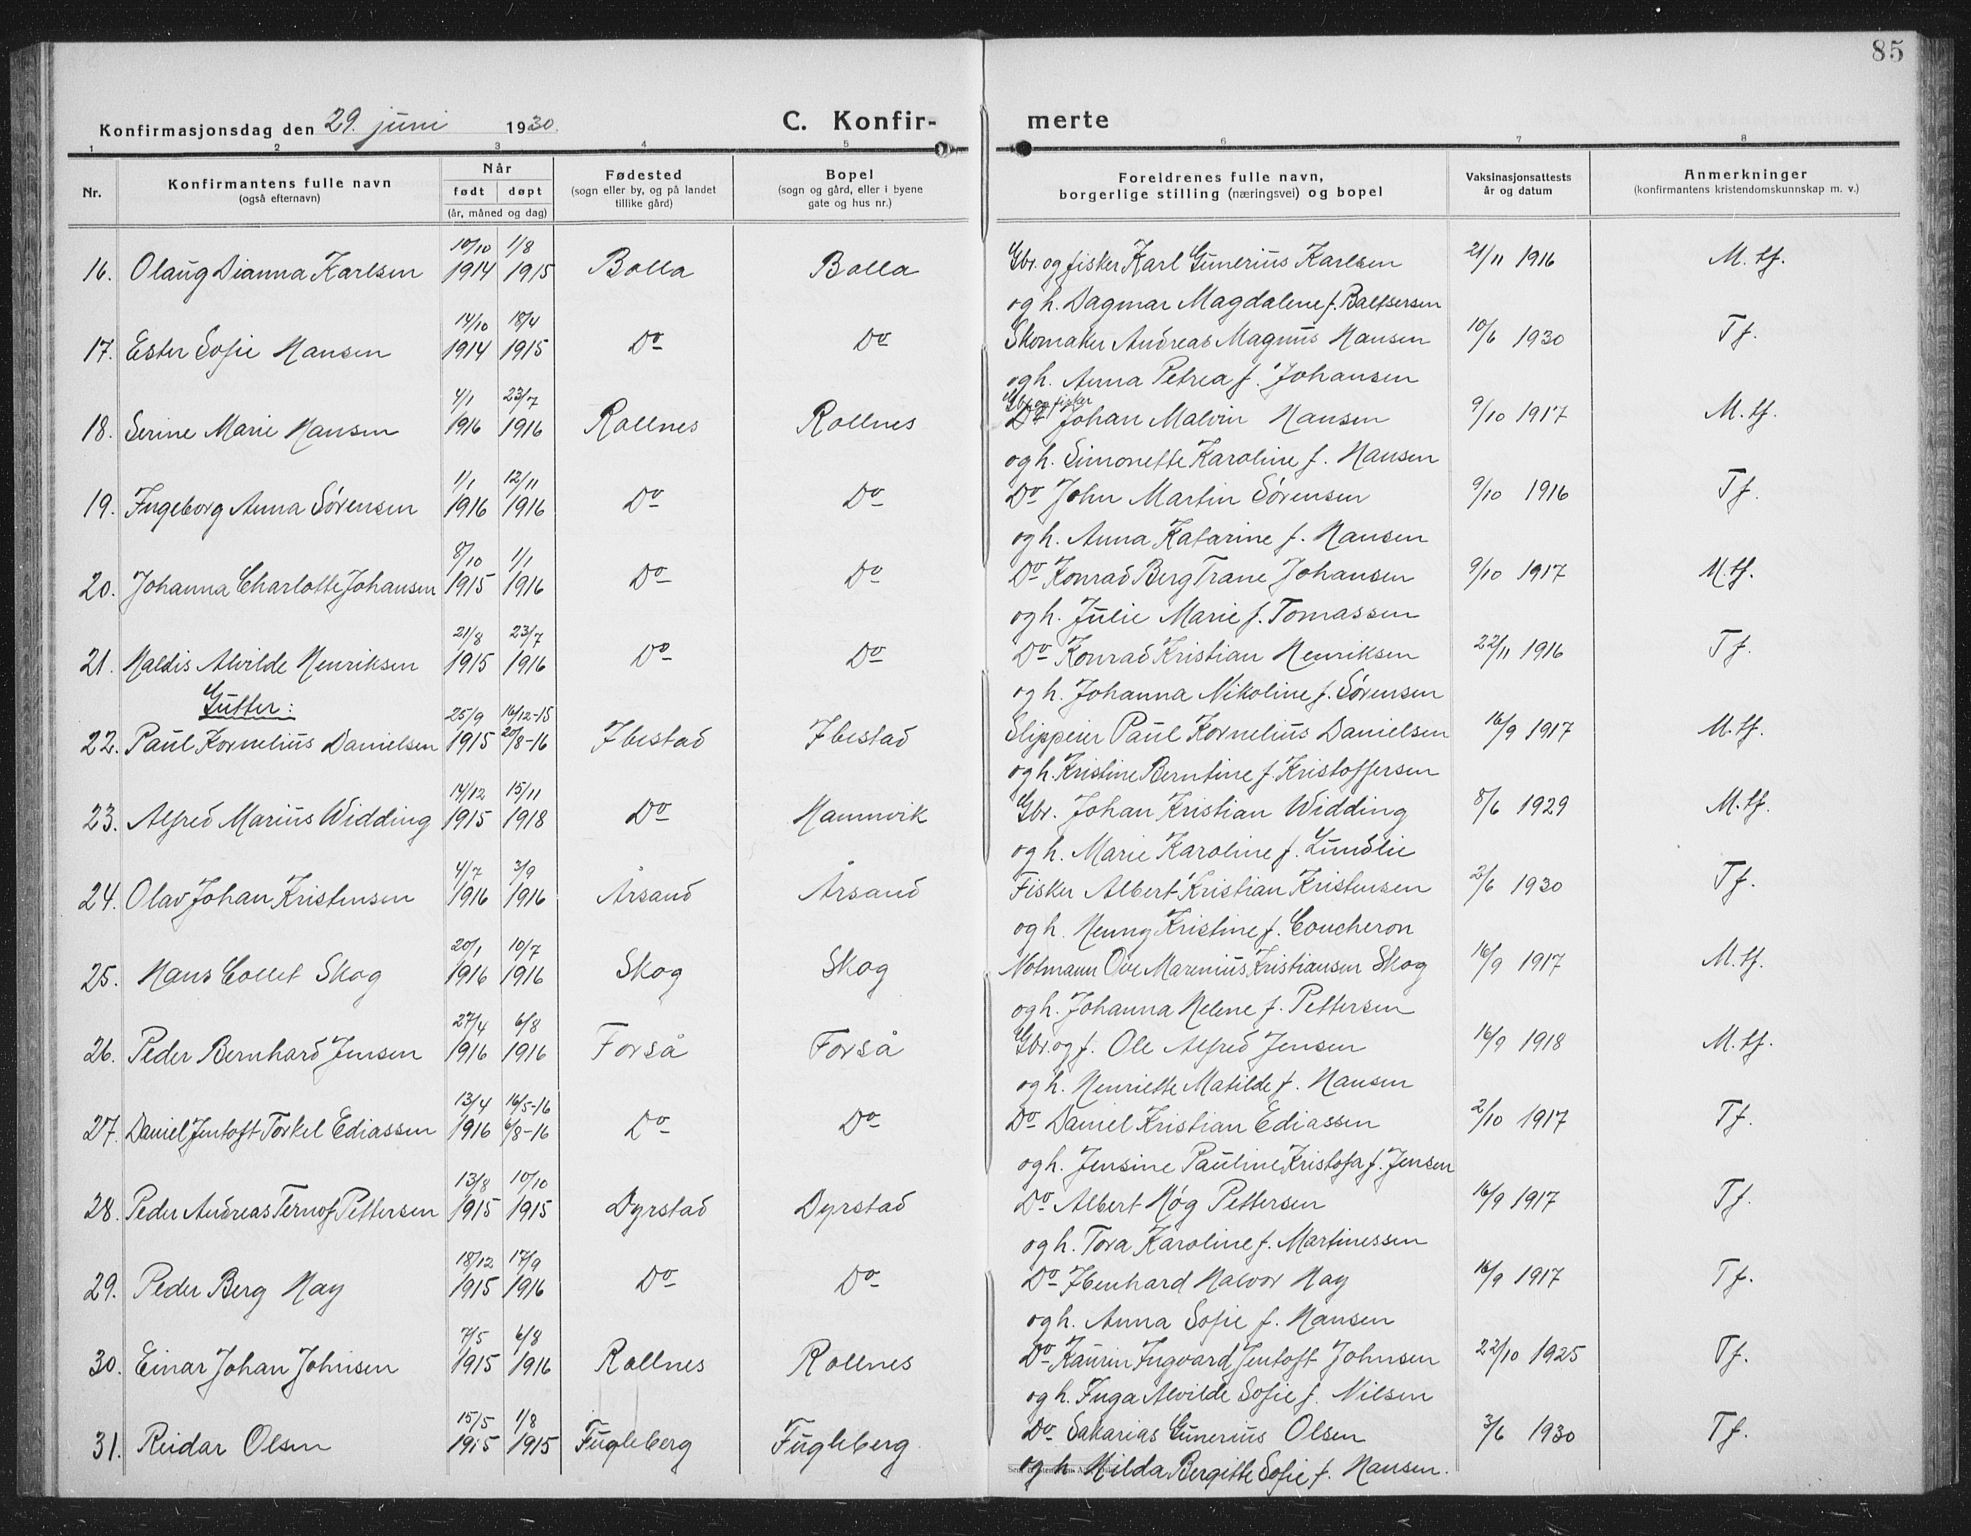 85
Konfirmasjonsdag den 29. juni 1930. C. Konfir- merte
1 2 3 4 5 6 7 8
Nr. Konfirmantens fulle navn (også efternavn) Når født døpt (år, måned og dag) Fødested (sogn eller by, og på landet tillike gård) Bopel (sogn og gård, eller i byene gate og hus nr.) Foreldrenes fulle navn, borgerlige stilling (næringsvei) og bopel Vaksinasjonsattests år og datum Anmerkninger (konfirmantens kristendomskunnskap m. v.)
16. Olaug Dianna Karlsen 10/10 1914 1/8 1915 Bolla Bolla Gbr. og fisker Karl Gunerius Karlsen 21/11 1916 M. tf.
og h. Dagmar Magdalene f. Baltsersen
17. Ester Sofie Hansen 14/10 1914 18/4 1915 Do Do Skomaker Andreas Magnus Hansen 10/6 1930 Tf.
og h. Anna Petrea f. Johansen
18. Serine Marie Hansen 4/1 1916 23/7 1916 Rollnes Rollnes Gbr. og fisker Do Johan Malvin Hansen 9/10 1917 M. tf.
og h. Simonette Karoline f. Hansen
19. Ingeborg Anna Sørensen 1/1 1916 12/11 1916 Do Do Do John Martin Sørensen 9/10 1916 Tf.
og h. Anna Katarine f. Hansen
20. Johanna Charlotte Johansen 8/10 1915 1/1 1916 Do Do Do Konrad Berg Trane Johansen 9/10 1917 M. tf.
og h. Julie Marie f. Tomassen
21. Haldis Alvilde Henriksen 21/8 1915 23/7 1916 Do Do Do Konrad Kristian Henriksen 22/11 1916 Tf.
og h. Johanna Nikoline f. Sørensen
Gutter:
22. Paul Kornelius Danielsen 25/9 1915 16/12-15 20/8-16 Ibestad Ibestad Slippeier Paul Kornelius Danielsen 16/9 1917 M. tf.
og h. Kristine Berntine f. Kristoffersen
23. Alfred Marius Widding 14/12 1915 15/11 1918 Do Hamnvik Gbr. Johan Kristian Widding 8/6 1929 M. tf.
og h. Marie Karoline f. Lundlie
24. Olav Johan Kristensen 4/7 1916 3/9 1916 Årsand Årsand Fisker Albert Kristian Kristensen 2/6 1930 Tf.
og h. Henny Kristine f. Coucheron
25. Hans Collet Skog 20/1 1916 10/7 1916 Skog Skog Notmann Ove Marenius Kristiansen Skog 16/9 1917 M. tf.
og h. Johanna Helene f. Pettersen
26. Peder Bernhard Jensen 27/4 1916 6/8 1916 Forså Forså Gbr. og f. Ole Alfred Jensen 16/9 1918 M. tf.
og h. Henriette Matilde f. Hansen
27. Daniel Jentoft Torkel Ediassen 13/4 1916 16/5-16 6/8-16 Do Do Do Daniel Kristian Ediassen 2/10 1917 Tf.
og h. Jensine Pauline Kristofa f. Jensen
28. Peder Andreas Ternof Pettersen 13/8 1915 10/10 1915 Dyrstad Dyrstad Do Albert Høg Pettersen 16/9 1917 Tf.
og h. Tora Karoline f. Martinessen
29. Peder Berg Hay 18/12 1915 17/9 1916 Do Do Do Ibenhard Halvor Hay 16/9 1917 Tf.
og h. Anna Sofie f. Hansen
30. Einar Johan Johnsen 7/5 1915 6/8 1916 Rollnes Rollnes Do Kaurin Ingvard Jentoft Johnsen 22/10 1925 Tf.
og h. Inga Alvilde Sofie f. Nilsen
31. Reidar Olsen 15/5 1915 1/8 1915 Fugleberg Fugleberg Do Sakarias Gunerius Olsen 3/6 1930 Tf.
og h. Hilda Bergitte Sofie f. Hansen.